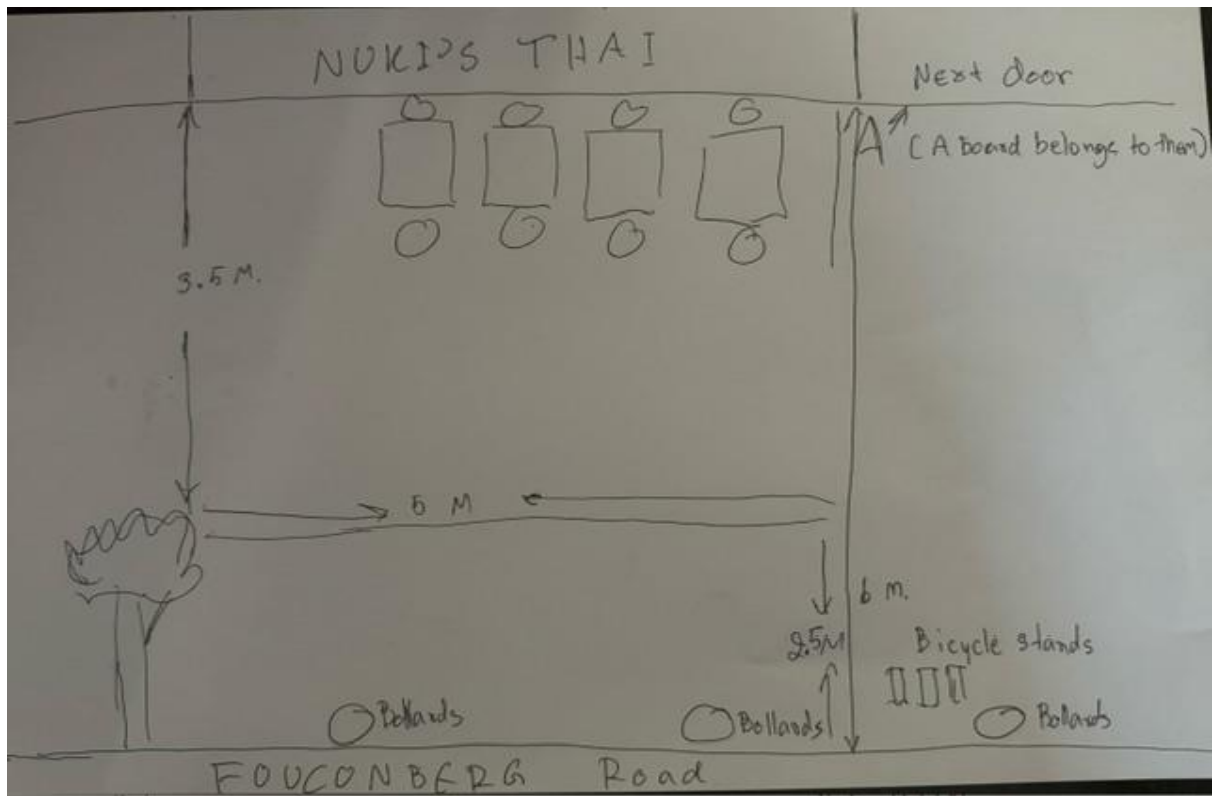 NUKI'S THAI
Next door
A (A board belongs to them)
3.5 M.
5 M
6 m.
2.5M
Bicycle stands
Bollards
Bollards
Bollards
FOUCONBERG Road